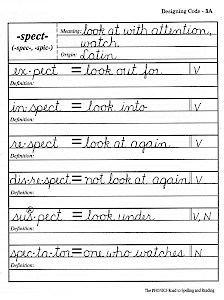 Designing Code - 3A
-spect-
(-spec-, -spic-)
Meaning: look at with attention,
watch.
Origin: Latin
ex·pect = look out for. V
Definition:
in·spect = look into V
Definition:
re·spect = look at again. V
Definition:
dis·re·spect = not look at again. V
Definition:
sus·pect = look under V, N
Definition:
spec·ta·tor = one who watches N
Definition:
The PHONICS Road to Spelling and Reading